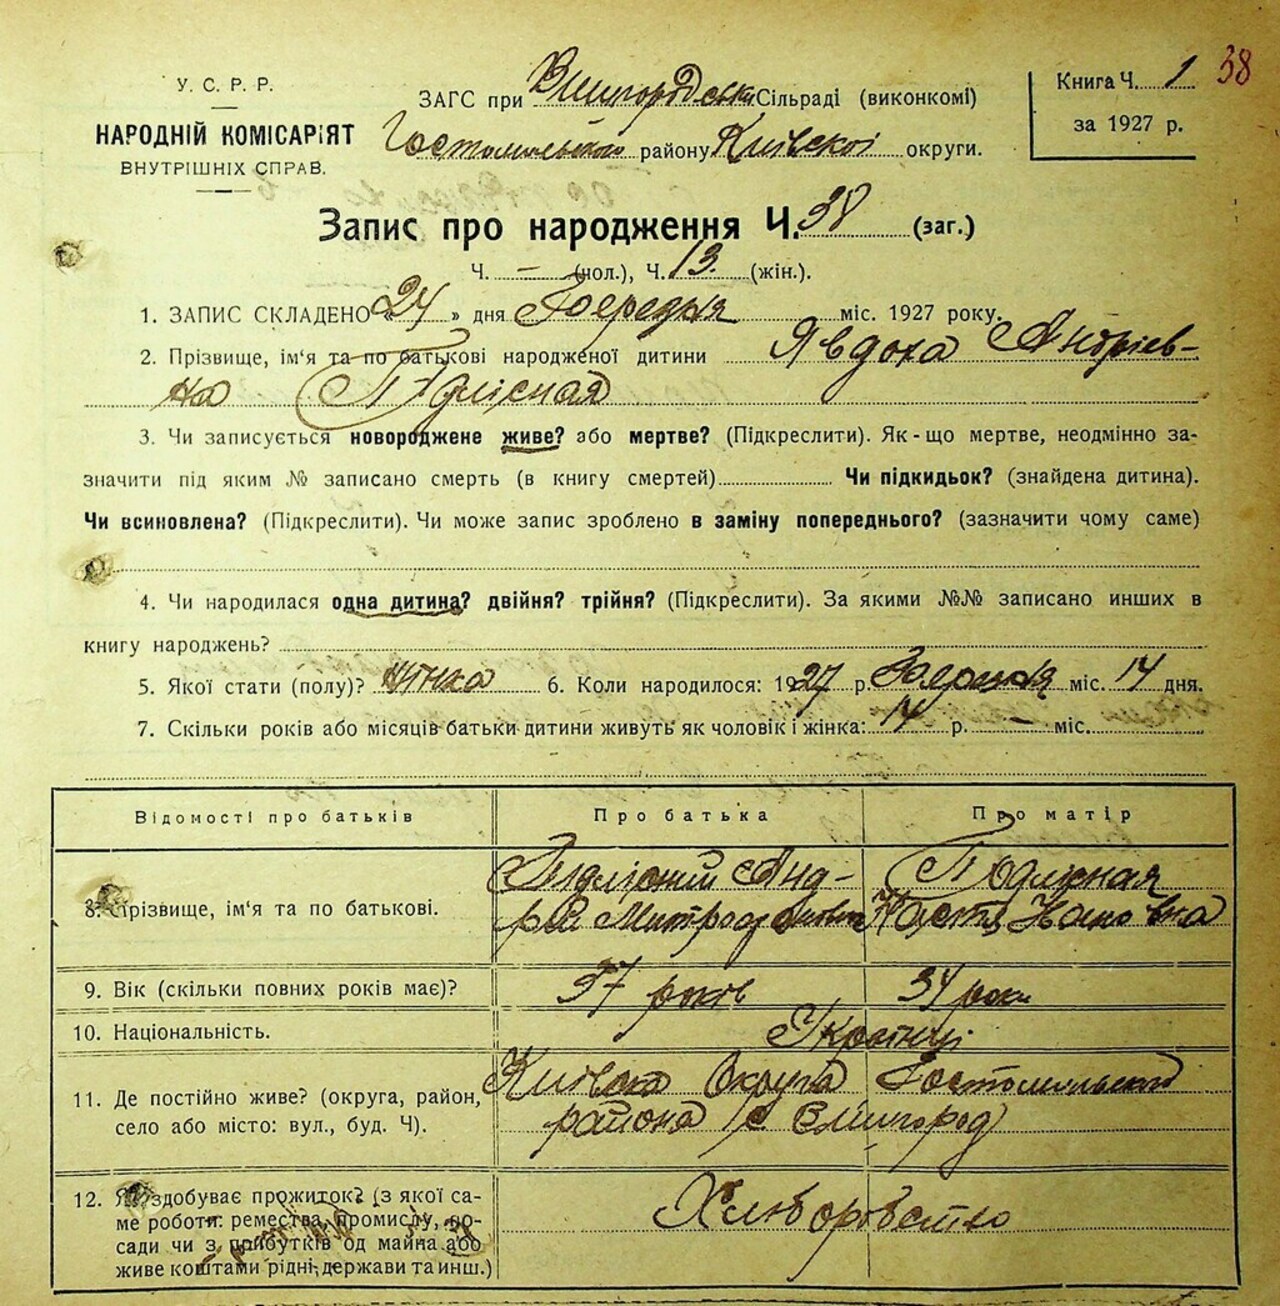 38
У. С. Р. Р.
НАРОДНІЙ КОМІСАРІЯТ
ВНУТРІШНІХ СПРАВ.
ЗАГС при Вишгородськи Сільраді (виконкомі)
Гостомльського району Київскоі округи.
Книга Ч. 1
за 1927 р.
Запис про народження Ч. 38 (заг.)
Ч. — (чол.), Ч. 13. (жін.).
1. ЗАПИС СКЛАДЕНО « 24 » дня міс. 1927 року.
2. Прізвище, ім'я та по батькові народженої дитини Явдоха Андріев-
на Підлісная
3. Чи записується новороджене живе? або мертве? (Підкреслити). Як-що мертве, неодмінно за-
значити під яким № записано смерть (в книгу смертей) Чи підкидьок? (знайдена дитина).
Чи всиновлена? (Підкреслити). Чи може запис зроблено в заміну попереднього? (зазначити чому саме)
4. Чи народилася одна дитина? двійня? трійня? (Підкреслити). За якими №№ записано инших в
книгу народжень?
5. Якої стати (полу)? жінка 6. Коли народилося: 1927 р. міс. 14 дня.
7. Скільки років або місяців батьки дитини живуть як чоловік і жінка: 14 р. — міс.
Відомості про батьків Про батька Про матір
8. Прізвище, ім'я та по батькові.
Підлісний Анд-
рій Митрофанович
Підлісная
Настя Івановна
9. Вік (скільки повних років має)? 37 років 34 роки
10. Національність. Українці
11. Де постійно живе? (округа, район,
село або місто: вул., буд. Ч).
Київска Округа Гостомльского
района с Вишгород
12. Як здобуває прожиток? (з якої са-
ме роботи: ремества, промислу, по-
сади чи з прибутків од майна або
живе коштами рідні, держави та инш.)
Хлюборобство